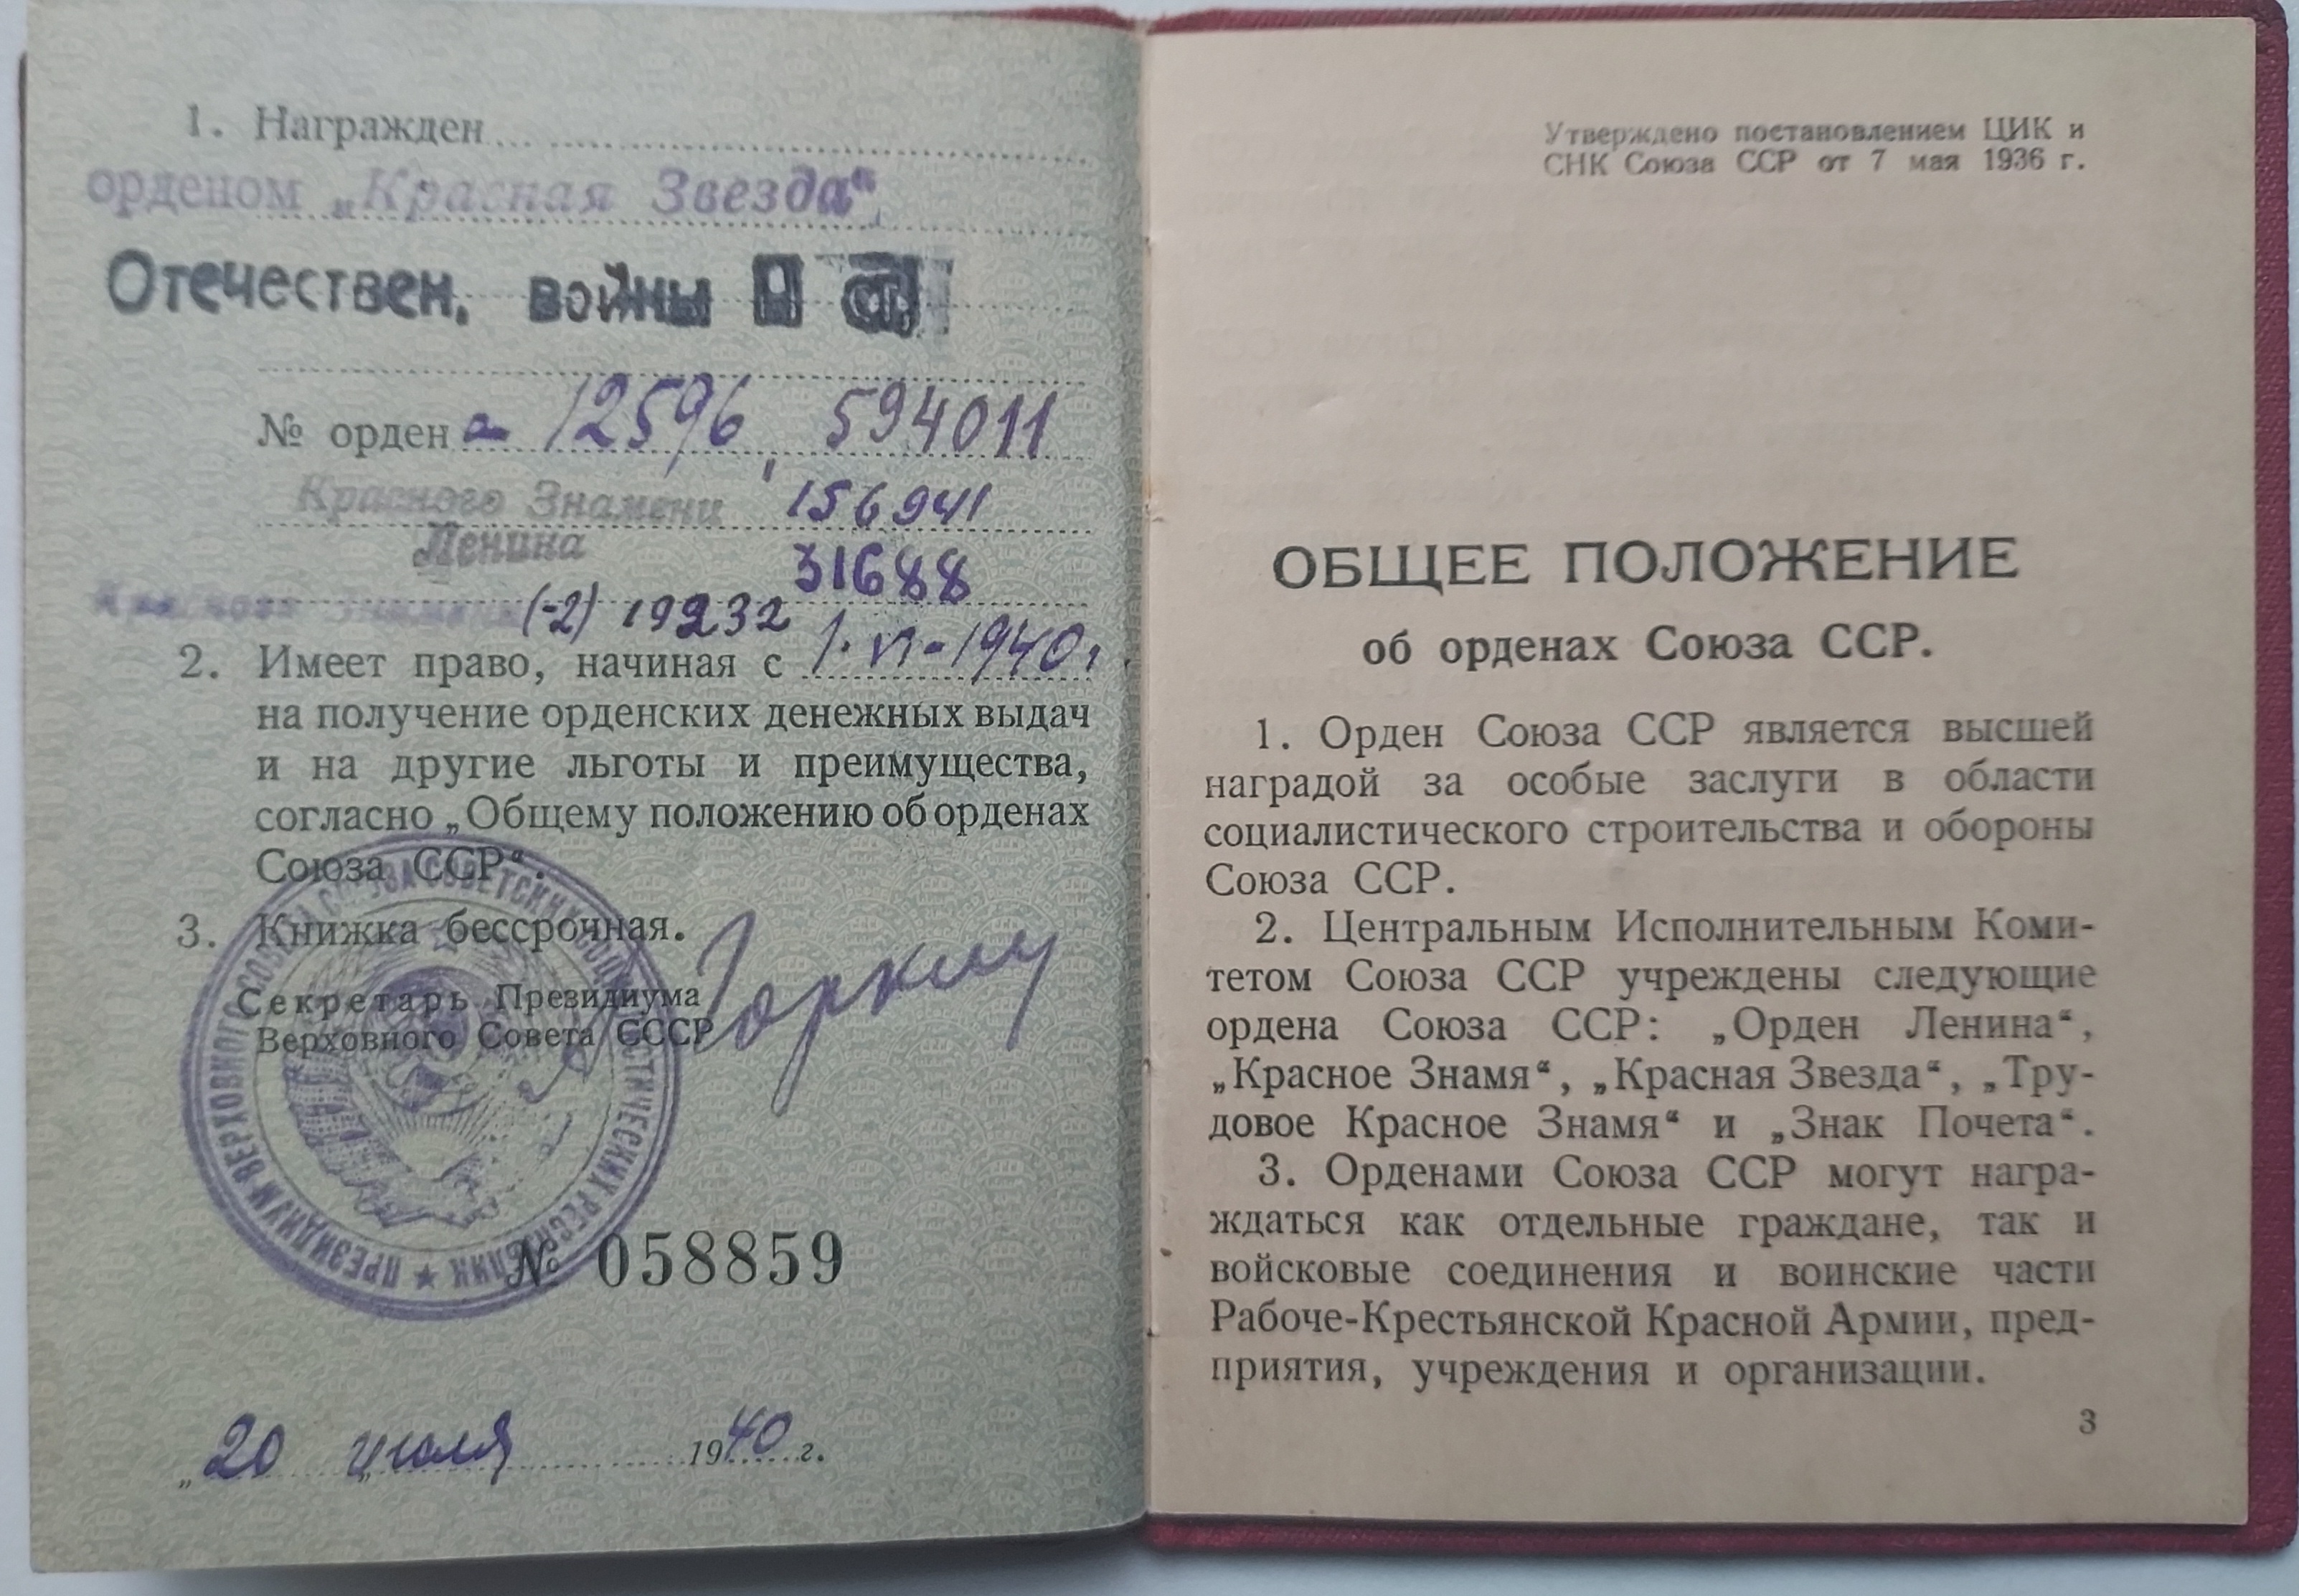 1. Награжден
орденом „Красная Звезда“
Отечествен. войны
№ орден а 12596, 594011
Красного Знамени 156941
Ленина 31688
Красного Знамени (-2) 19232
2. Имеет право, начиная с 1.VI-1940г
на получение орденских денежных выдач
и на другие льготы и преимущества,
согласно „Общему положению об орденах
Союза ССР“.
3. Книжка бессрочная.
Секретарь Президиума
Верховного Совета СССР
А Горкин
ПРЕЗИДИУМ ВЕРХОВНОГО СОВЕТА СОЮЗА СОВЕТСКИХ СОЦИАЛИСТИЧЕСКИХ РЕСПУБЛИК ★
№ 058859
„20 июля 1940 г.
Утверждено постановлением ЦИК и
СНК Союза ССР от 7 мая 1936 г.
ОБЩЕЕ ПОЛОЖЕНИЕ
об орденах Союза ССР.
1. Орден Союза ССР является высшей
наградой за особые заслуги в области
социалистического строительства и обороны
Союза ССР.
2. Центральным Исполнительным Коми-
тетом Союза ССР учреждены следующие
ордена Союза ССР: „Орден Ленина“,
„Красное Знамя“, „Красная Звезда“, „Тру-
довое Красное Знамя“ и „Знак Почета“.
3. Орденами Союза ССР могут награ-
ждаться как отдельные граждане, так и
войсковые соединения и воинские части
Рабоче-Крестьянской Красной Армии, пред-
приятия, учреждения и организации.
3